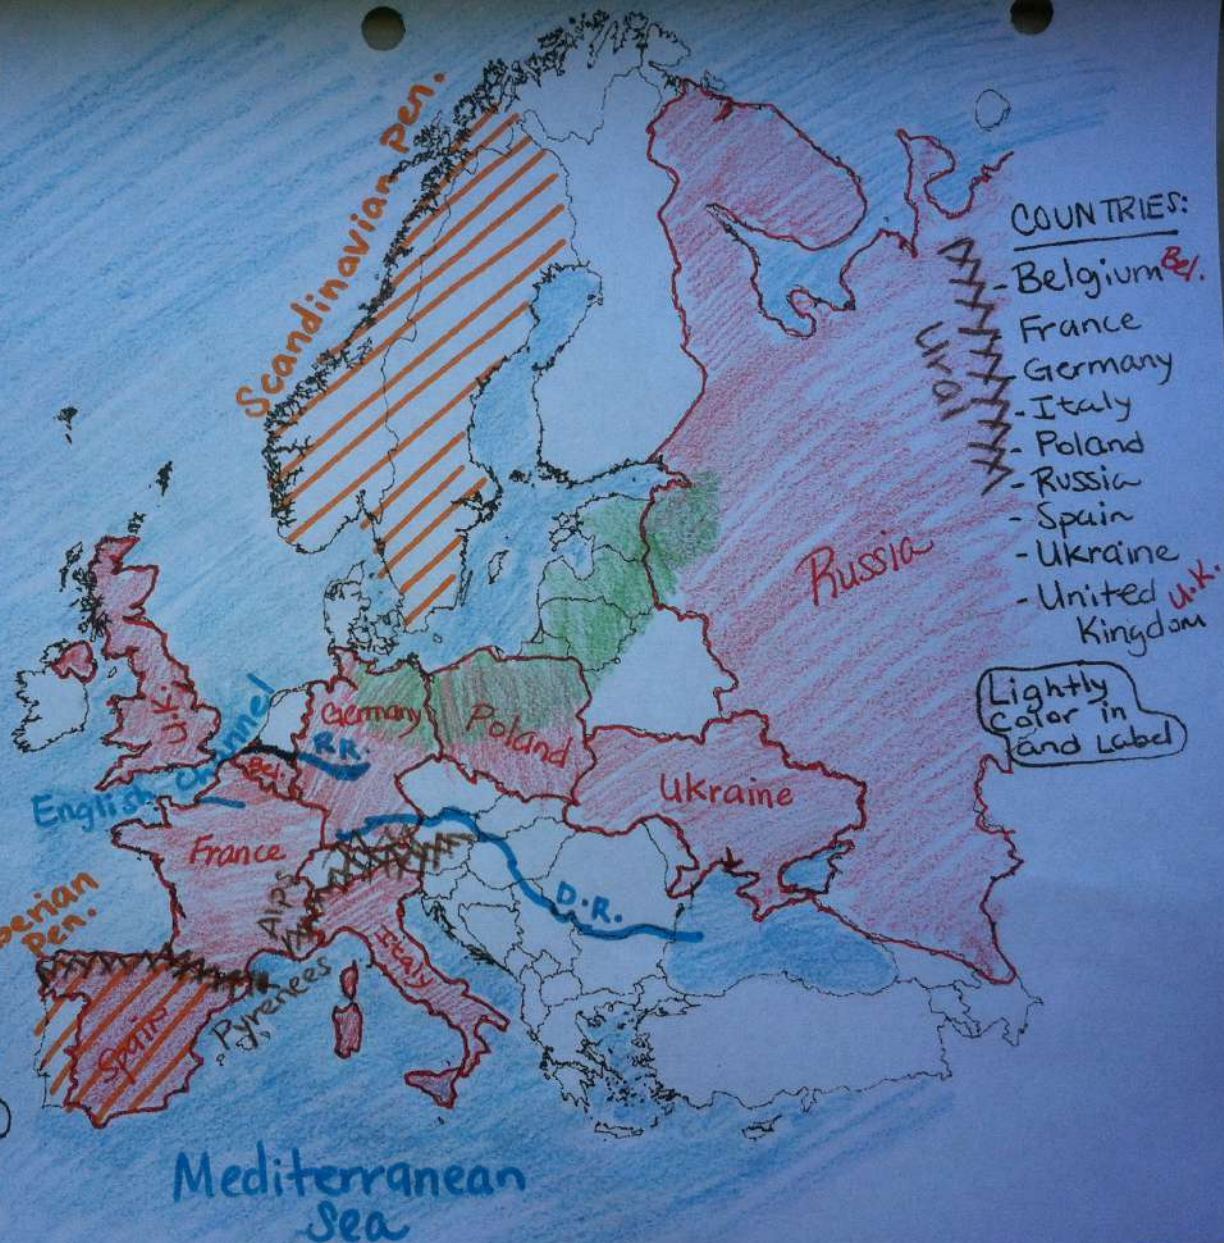 Scandinavian Pen.
COUNTRIES:
- Belgium Bel.
France
- Germany
- Italy
- Poland
- Russia
- Spain
- Ukraine
- United U.K.
Kingdom
Lightly
Color in
and Label
Ural
Russia
U.K.
English Channel
Germany
R.R.
Bel.
Poland
Ukraine
France
Alps
D.R.
Pen.
Italy
Pyrenees
Spain
Mediterranean
Sea